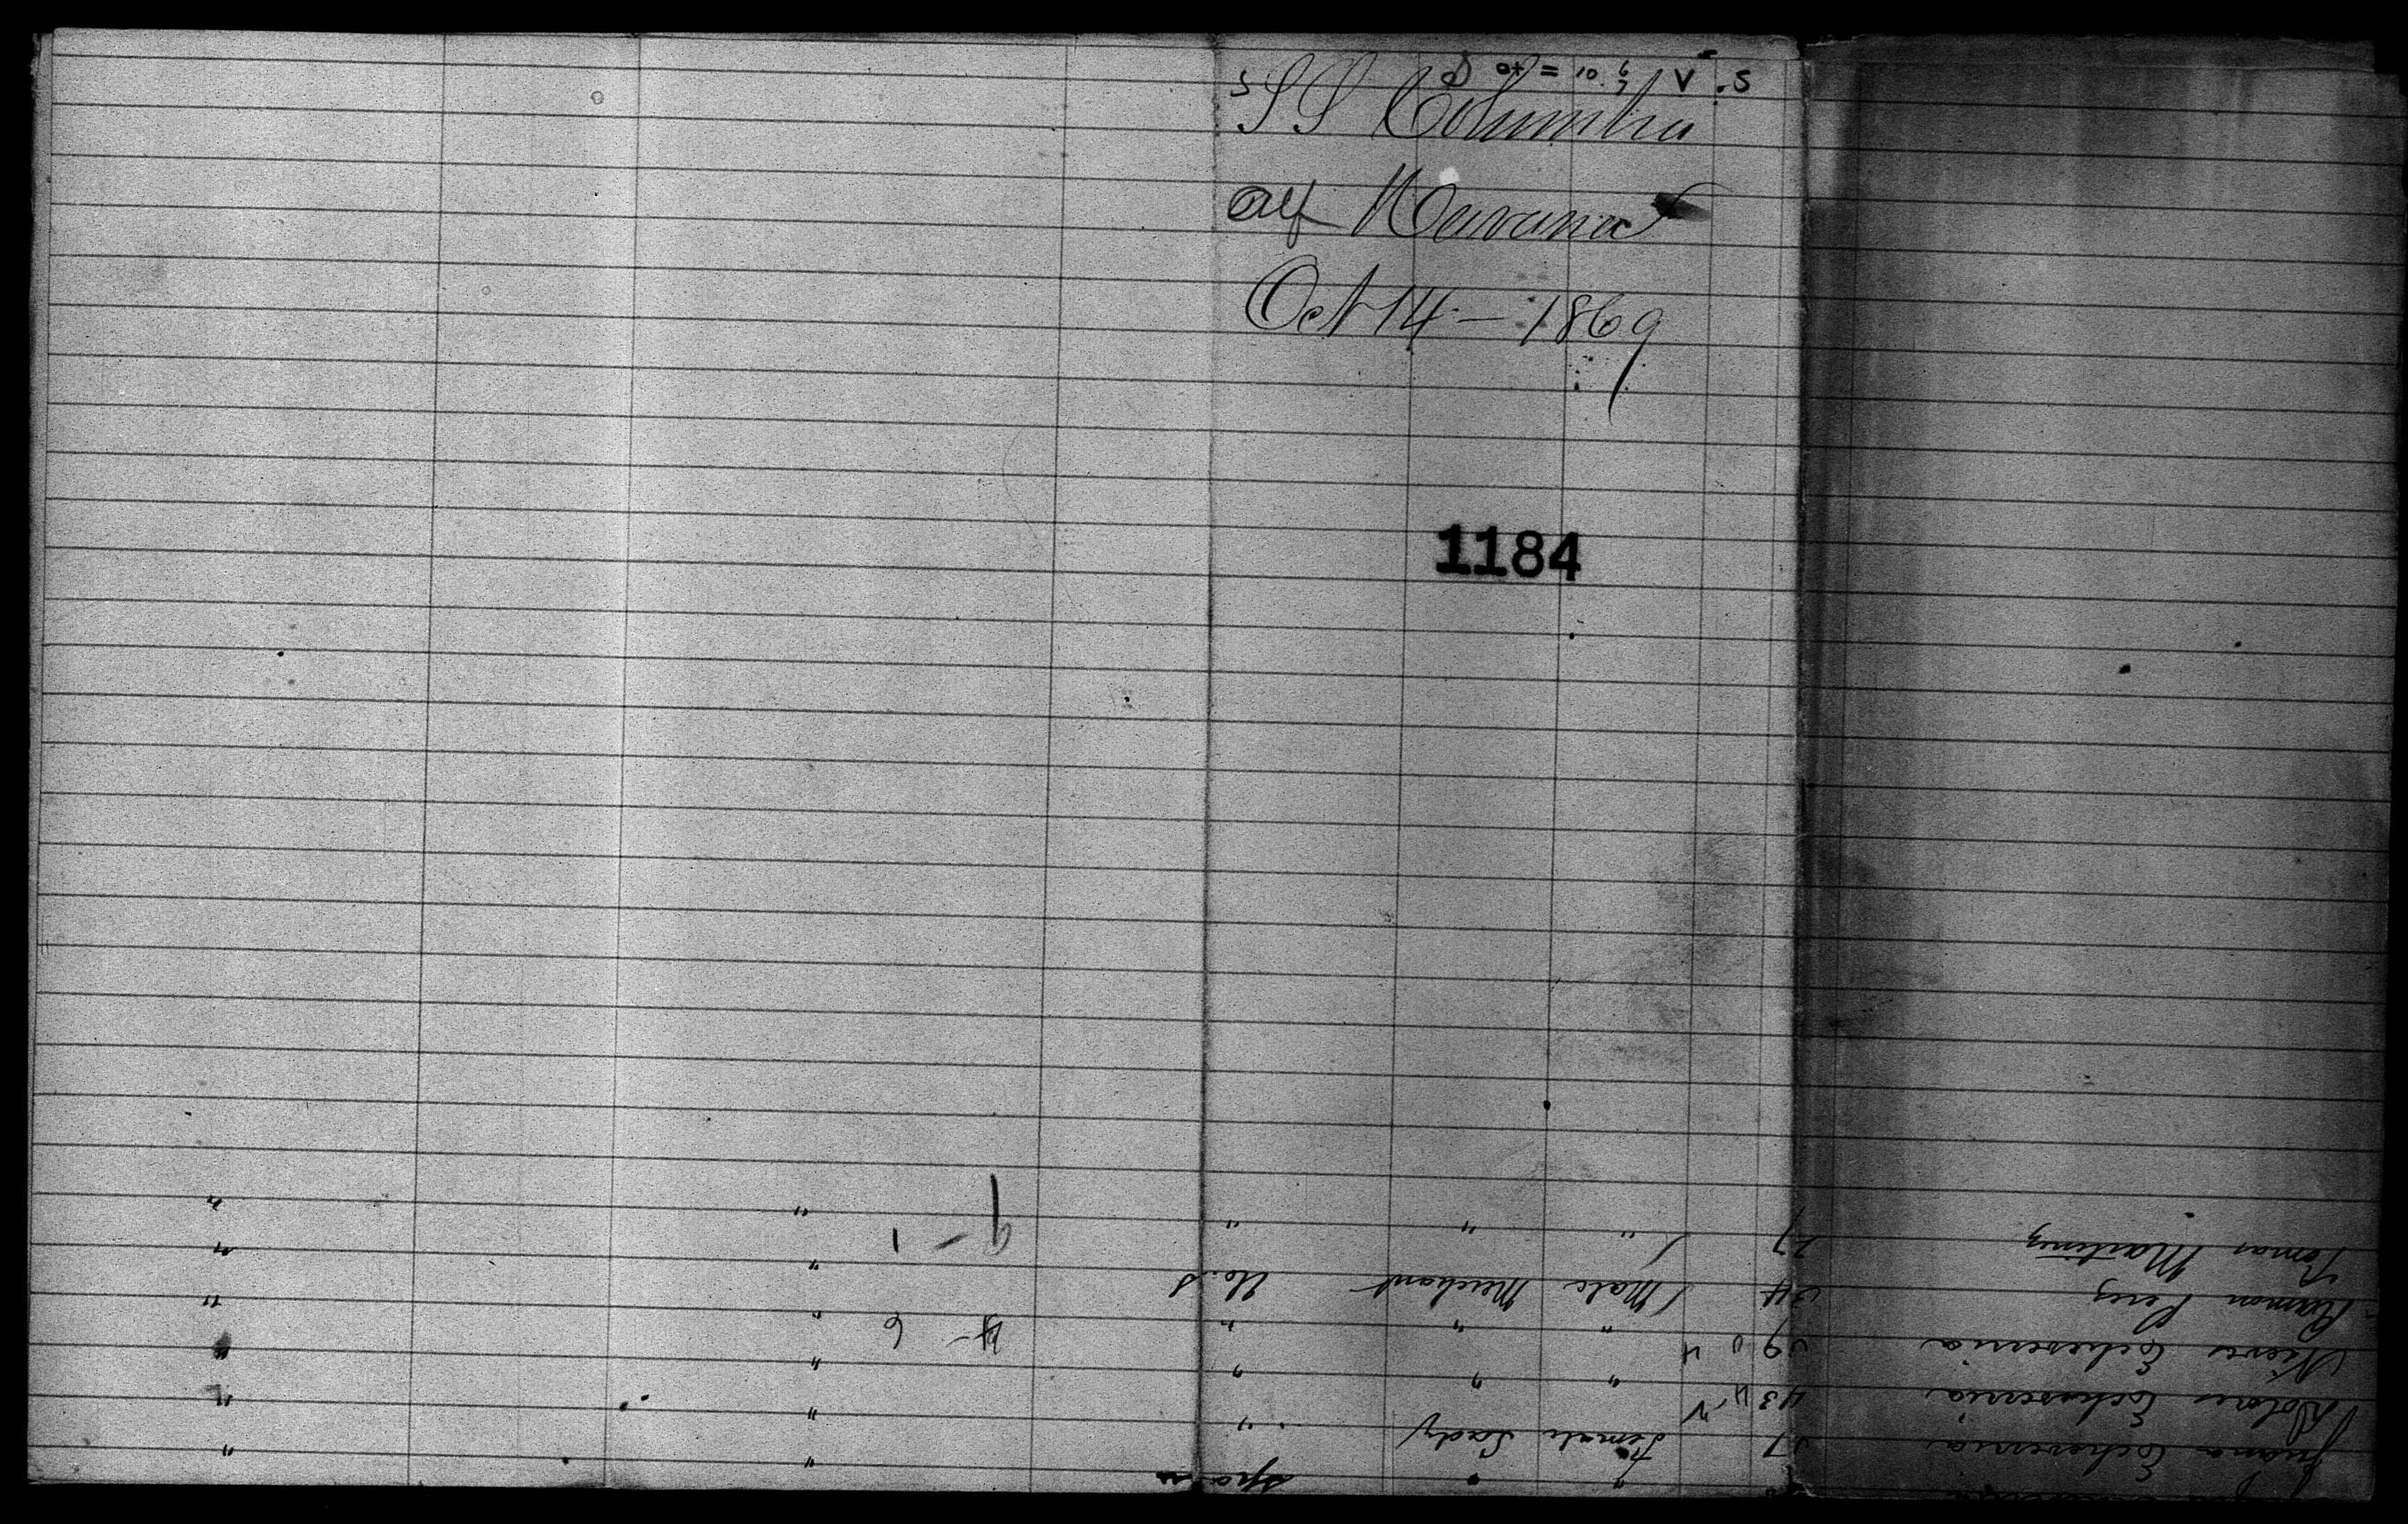 SS Columbia
Havana
Oct 14 — 1869
1184
Juana Echeverria 27 Female Lady "
Dolores Echeverria 43 " " "
Nieves Echeverria 39 " " "
Ramon Perez 34 Male Merchant U.S "
Tomas Martinez 27 " " " "
4 - 6
9 - 1